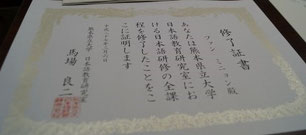 修了証書
ファン ミニョン 殿
あなたは熊本県立大学
日本語教育研究室にお
ける日本語研修の全課
程を修了したことをこ
こに証明します
熊本県立大学 日本語教育研究室
馬場 良二